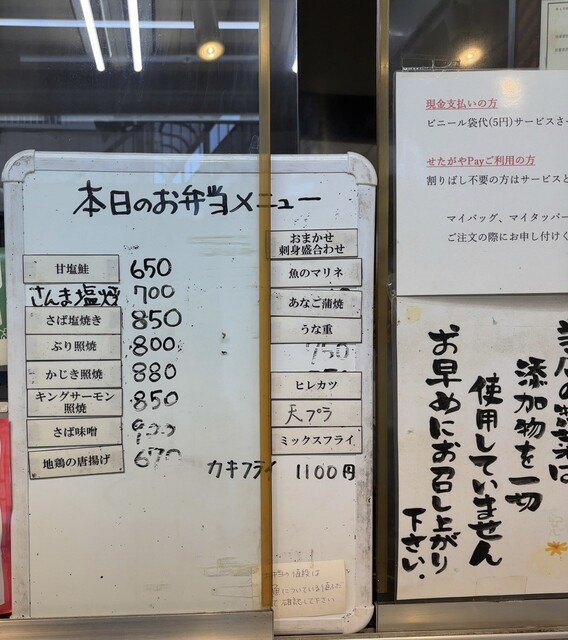 本日のお弁当メニュー
甘塩鮭 650
さんま塩焼 700
さば塩焼き 850
ぶり照焼 800
かじき照焼 880
キングサーモン
照焼 850
さば味噌 900
地鶏の唐揚げ 670
おまかせ
刺身盛合わせ
魚のマリネ
あなご蒲焼
うな重
ヒレカツ
天プラ
ミックスフライ
カキフライ 1100円
現金支払いの方
ビニール袋代(5円)サービスさ
せたがやPayご利用の方
割りばし不要の方はサービスと
マイバッグ、マイタッパー
ご注文の際にお申し付けく
添加物を一切
使用していません
お早めにお召し上がり
下さい。